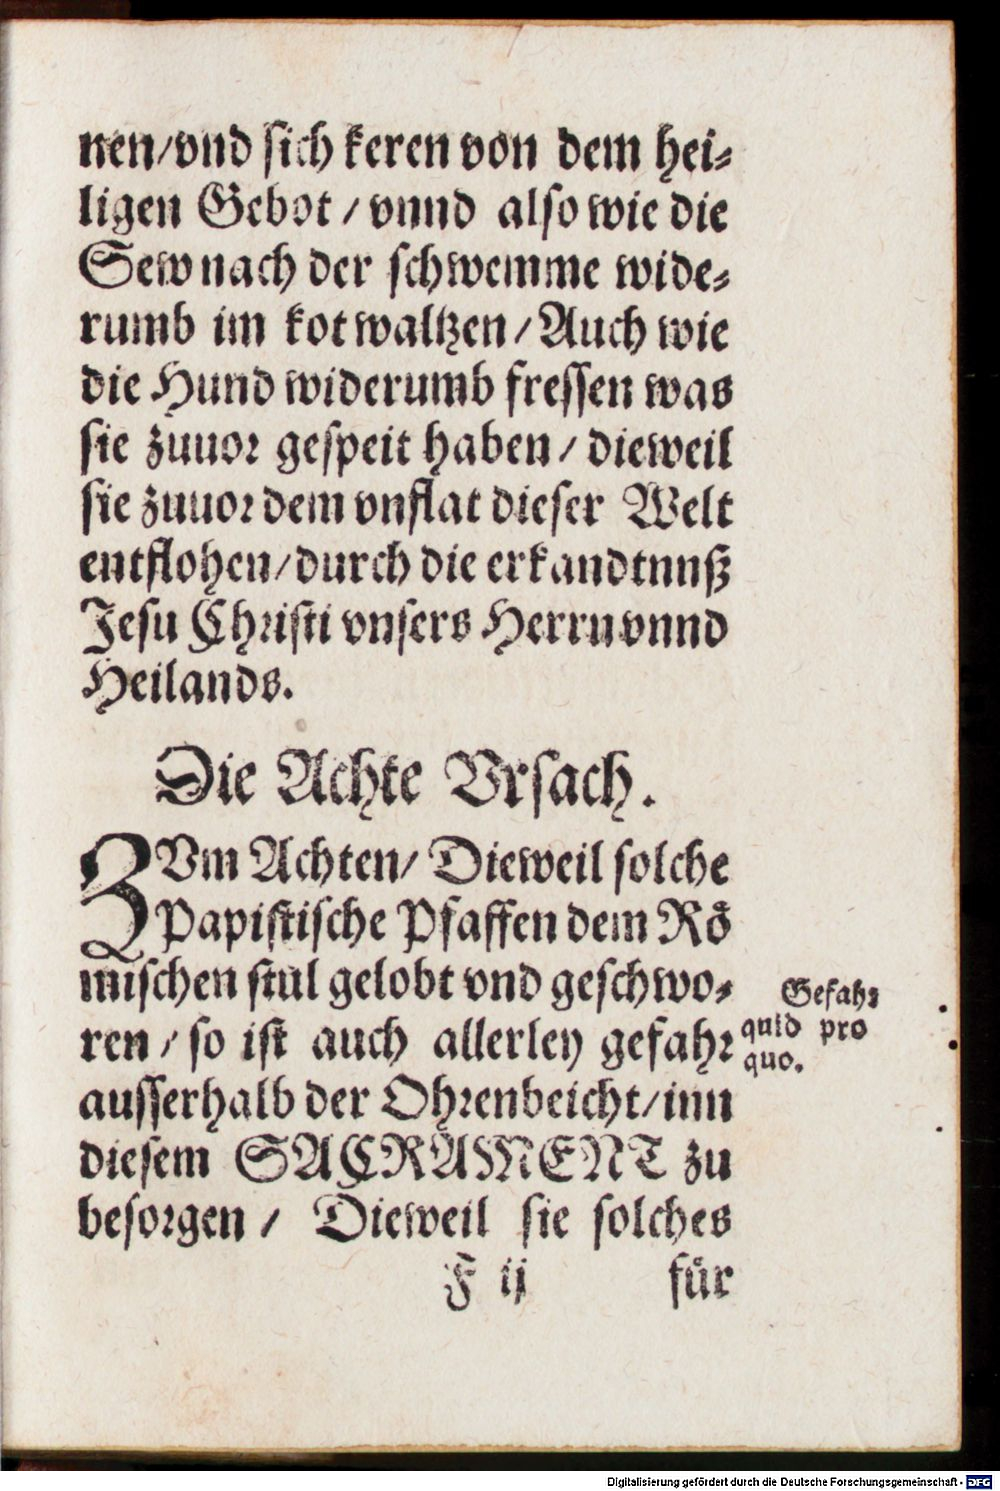 nen/vnd sich keren von dem hei⸗
ligen Gebot / vnnd also wie die
Sew nach der schwemme wide⸗
rumb im kot waltzen / Auch wie
die Hund widerumb fressen was
sie zuuor gespeit haben / dieweil
sie zuuor dem vnflat dieser Welt
entflohen/durch die erkandtnuß
Jesu Christi vnsers Herrn vnnd
Heilands.
Die Achte Vrsach.
ZVm Achten/ Dieweil solche
Papistische Pfaffen dem Rö
mischen stul gelobt vnd geschwo⸗
ren / so ist auch allerley gefahr
ausserhalb der Ohrenbeicht/inn
diesem SACRAMENT zu
besorgen / Dieweil sie solches
F ij für
Gefahr
quid pro
quo.
Digitalisierung gefördert durch die Deutsche Forschungsgemeinschaft - DFG